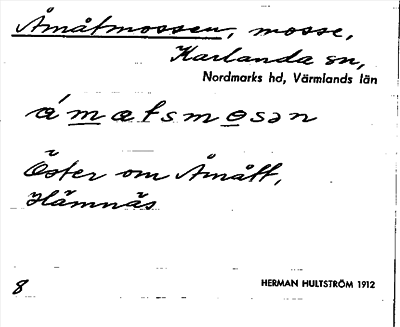 Åmåtmossen, mosse,
Karlanda sn,
Nordmarks hd, Värmlands län
á m æ t s m o s ə n
Öster om Åmått,
Hämnäs
8
HERMAN HULTSTRÖM 1912